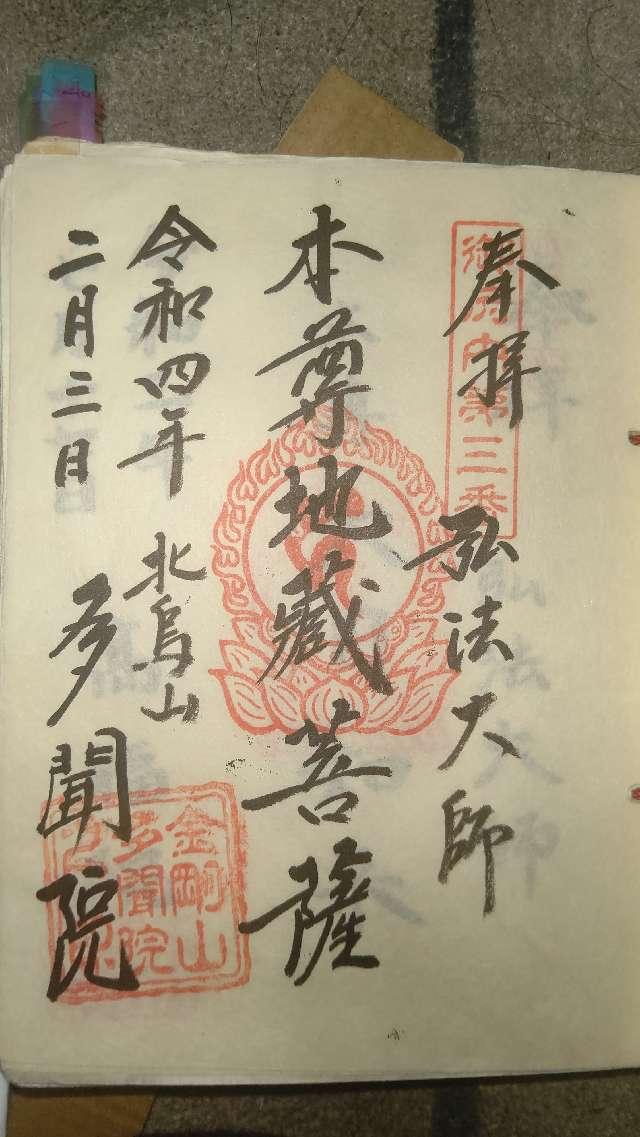 奉拝
御府内第三番
弘法大師
本尊地蔵菩薩
令和四年
二月三日
北烏山
多聞院
金剛山
多聞院